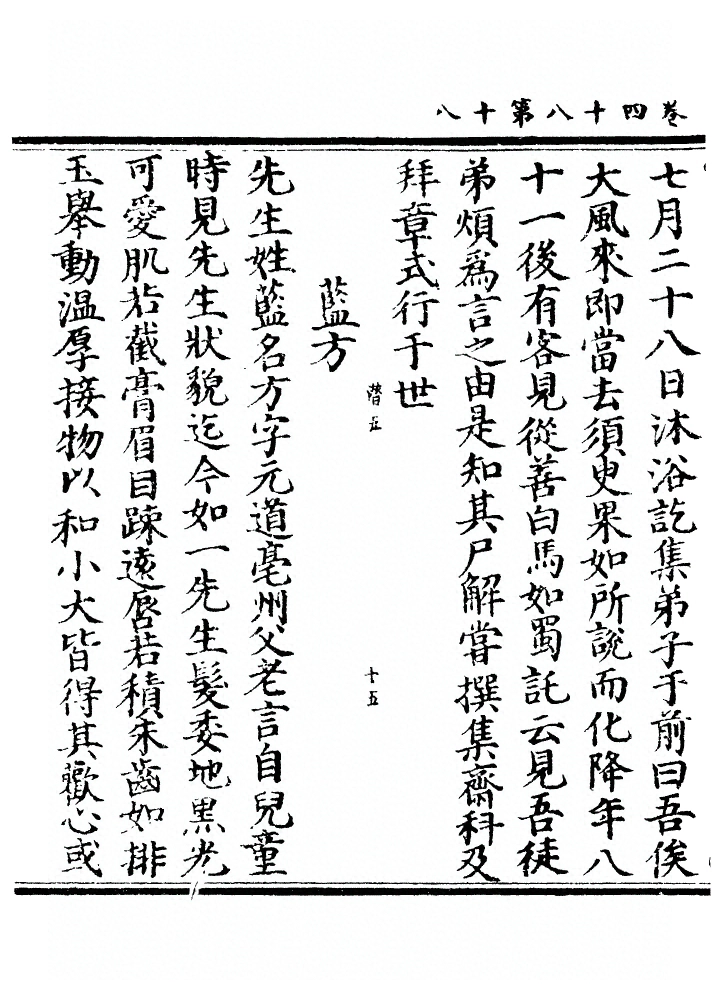 卷四十八第十八
七月二十八日沐浴訖集弟子于前曰吾俟
大風來即當去須臾果如所說而化降年八
十一後有客見從善白馬如蜀託云見吾徒
弟煩爲言之由是知其尸解嘗撰集齋科及
拜章式行于世
藍方
潛五
十五
先生姓藍名方字元道亳州父老言自兒童
時見先生狀貌迄今如一先生髮委地黑光
可愛肌若截膏眉目踈遠唇若積朱齒如排
玉舉動溫厚接物以和小大皆得其歡心或